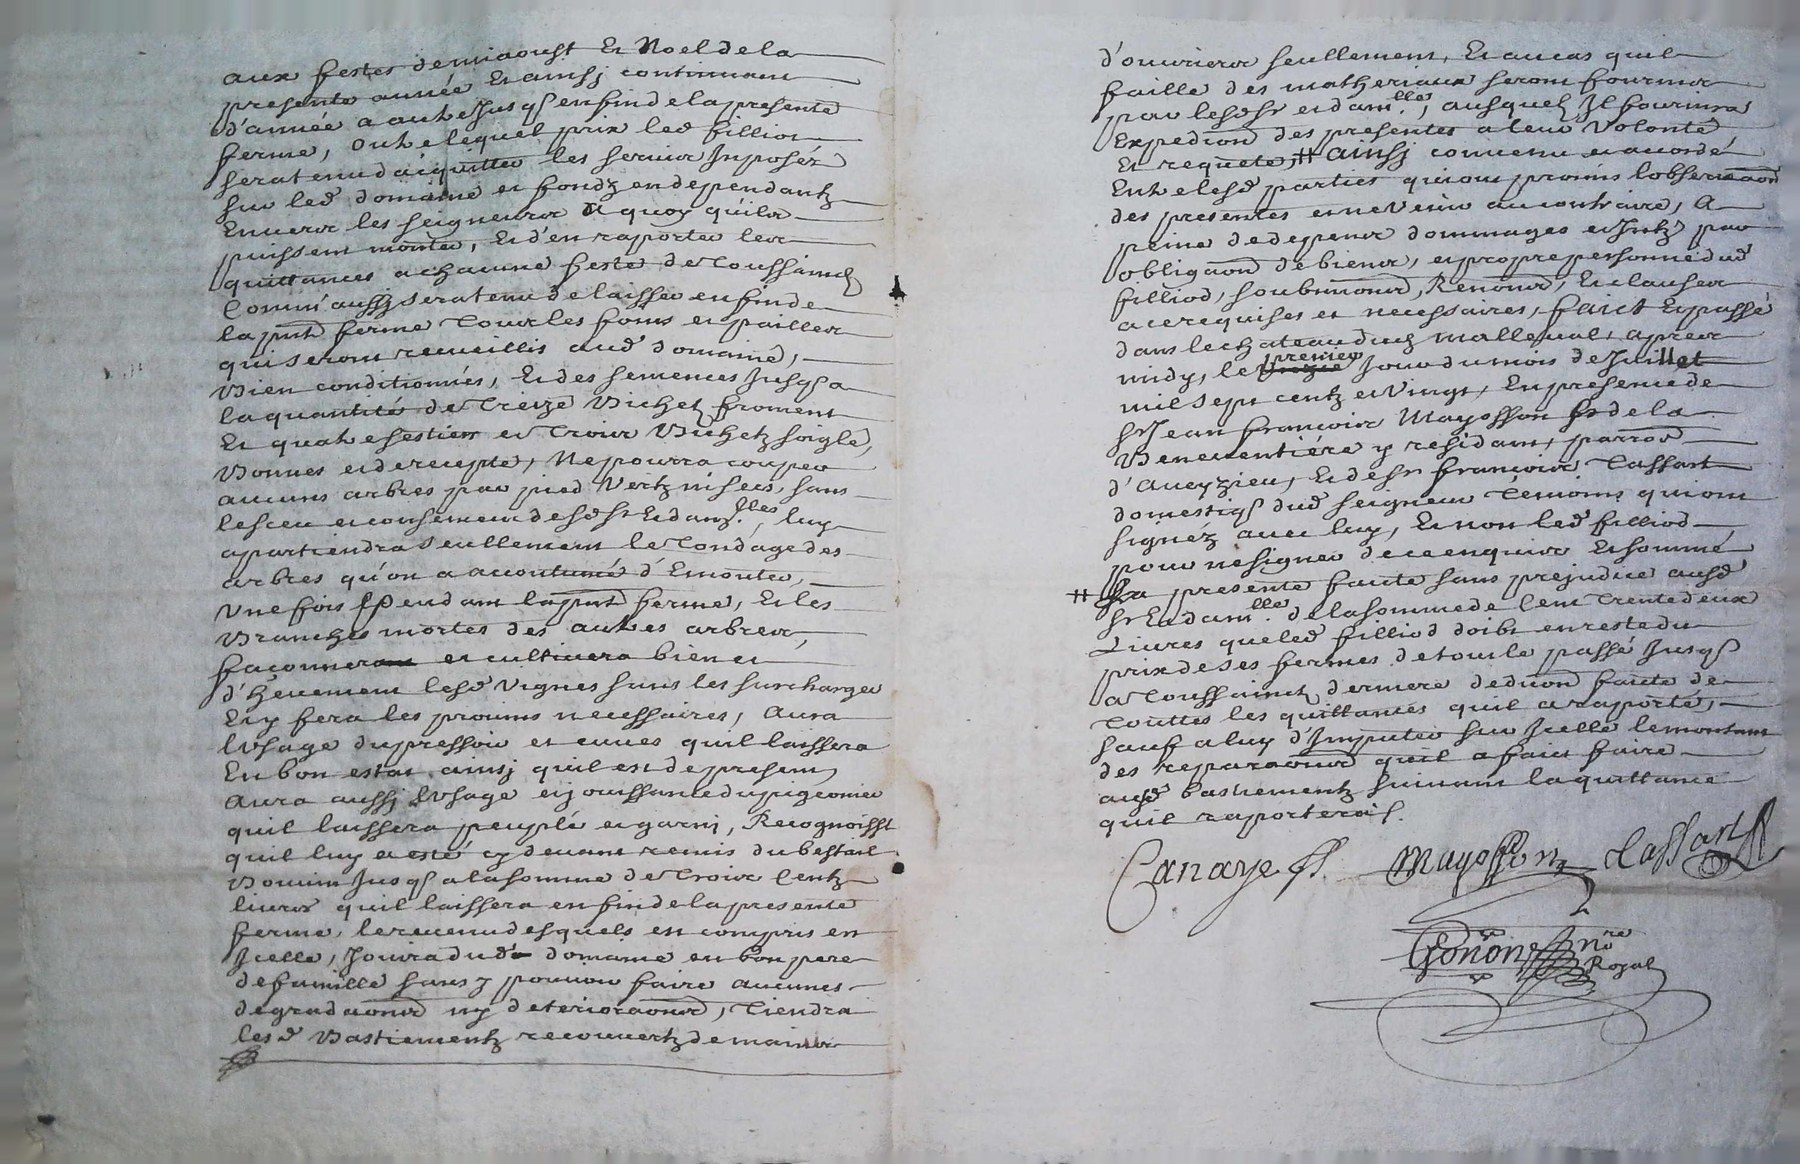 aux festes demiaoust Et Noel de la
presente année Et ainsj continuant
d'année a autre Jusqs en fin de la presente
ferme, outre lequel prix led filliod
sera tenu d'acquitter les servis Imposéz
sur led domaine et fondz en dependantz
Envers les seigneurs A quoy qu'ils
puissent monter, Et d'en raporter les
quittances a chacune feste de Toussainctz
Comm' aussj sera tenu de laisser en fin de
la pnte ferme Tous les foins et pailles
qui seront recueillis aud domaine,
Bien conditionnés, Et des semences Jusqs a
la quantité de Treize Bichetz froment
Et quatre sestiers et Trois Bichetz soigle,
Bonnes et de recepte, Ne pourra couper
aucuns arbres par pied Vertz nj secs, sans
le sceu et consentement desd sr Et damlles, luy
apartiendra seullement le Tondage des
arbres qu'on a accoutumé d'Emonter,
Une fois pendant la pnte ferme, Et les
Branches mortes des autres arbres,
façonnera et cultivera bien et
d'hëuement lesd Vignes sans les surcharger
Et y fera les provins necessaires, Aura
l'Usage du pressoir et cuves quil laissera
En bon estat ainsj quil est de present
Aura aussj l'Usage et jouissance du pigeonier
quil laissera peuplé et garnj, Recognoisst
quil luy a esté cy devant remis du bestail
Bovin Jusqs a la somme de Trois Centz
livres quil laissera en fin de la presente
ferme, le revenu desquels est compris en
Jcelle, Jouira dud domaine en bon pere
de famille sans y pouvoir faire aucunes
degradaons ny deterioraons, Tiendra
lesd Bastiementz recouvertz de mains
d'ouvriers seullement, Et au cas quil
faille des matheriaux seront fournis
par lesd sr et damlles, ausquels Jl fournira
Expedion des presentes a leur Volonté
Et requete, # ainsj convenu et accordé
Entre lesd parties qui ont promis l'observaon
des presentes et ne Venir au contraire, A
peine de depens dommages et Jntz par
obligaon de biens, et propre personne dud
filliod, soubmons, Renons, Et clauses
a ce requises et necessaires, faict Et passé
dans le chateau du malleval, apres
midy, le premier Jour du mois de Juillet
mil sept centz et Vingt, En presence de
Sr Jean françois Mayosson sr de la
Beneventiére y residant, parroe
d'Aveyzieu, Et de sr françois Tassart
domestiqs dud seigneur Témoins qui ont
signéz avec luy, Et non led filliod
pour ne signer de ce enquis Et sommé
# La presente faite sans prejudice ausd
sr Et damlle de la somme de Cent Trente deux
Livres que led filliod doibt en reste du
prix de ses fermes de tout le passé Jusqs
a Toussainctz derniere deduon faicte de
Touttes les quittances quil a raporté,
sauf a luy d'Imputer sur Jcelle le montant
des reparaons qu'il a faict faire
ausd bastiementz suivant la quittance
quil raportera.
Canaye Mayosson Tassart
Gonon nre
Royal